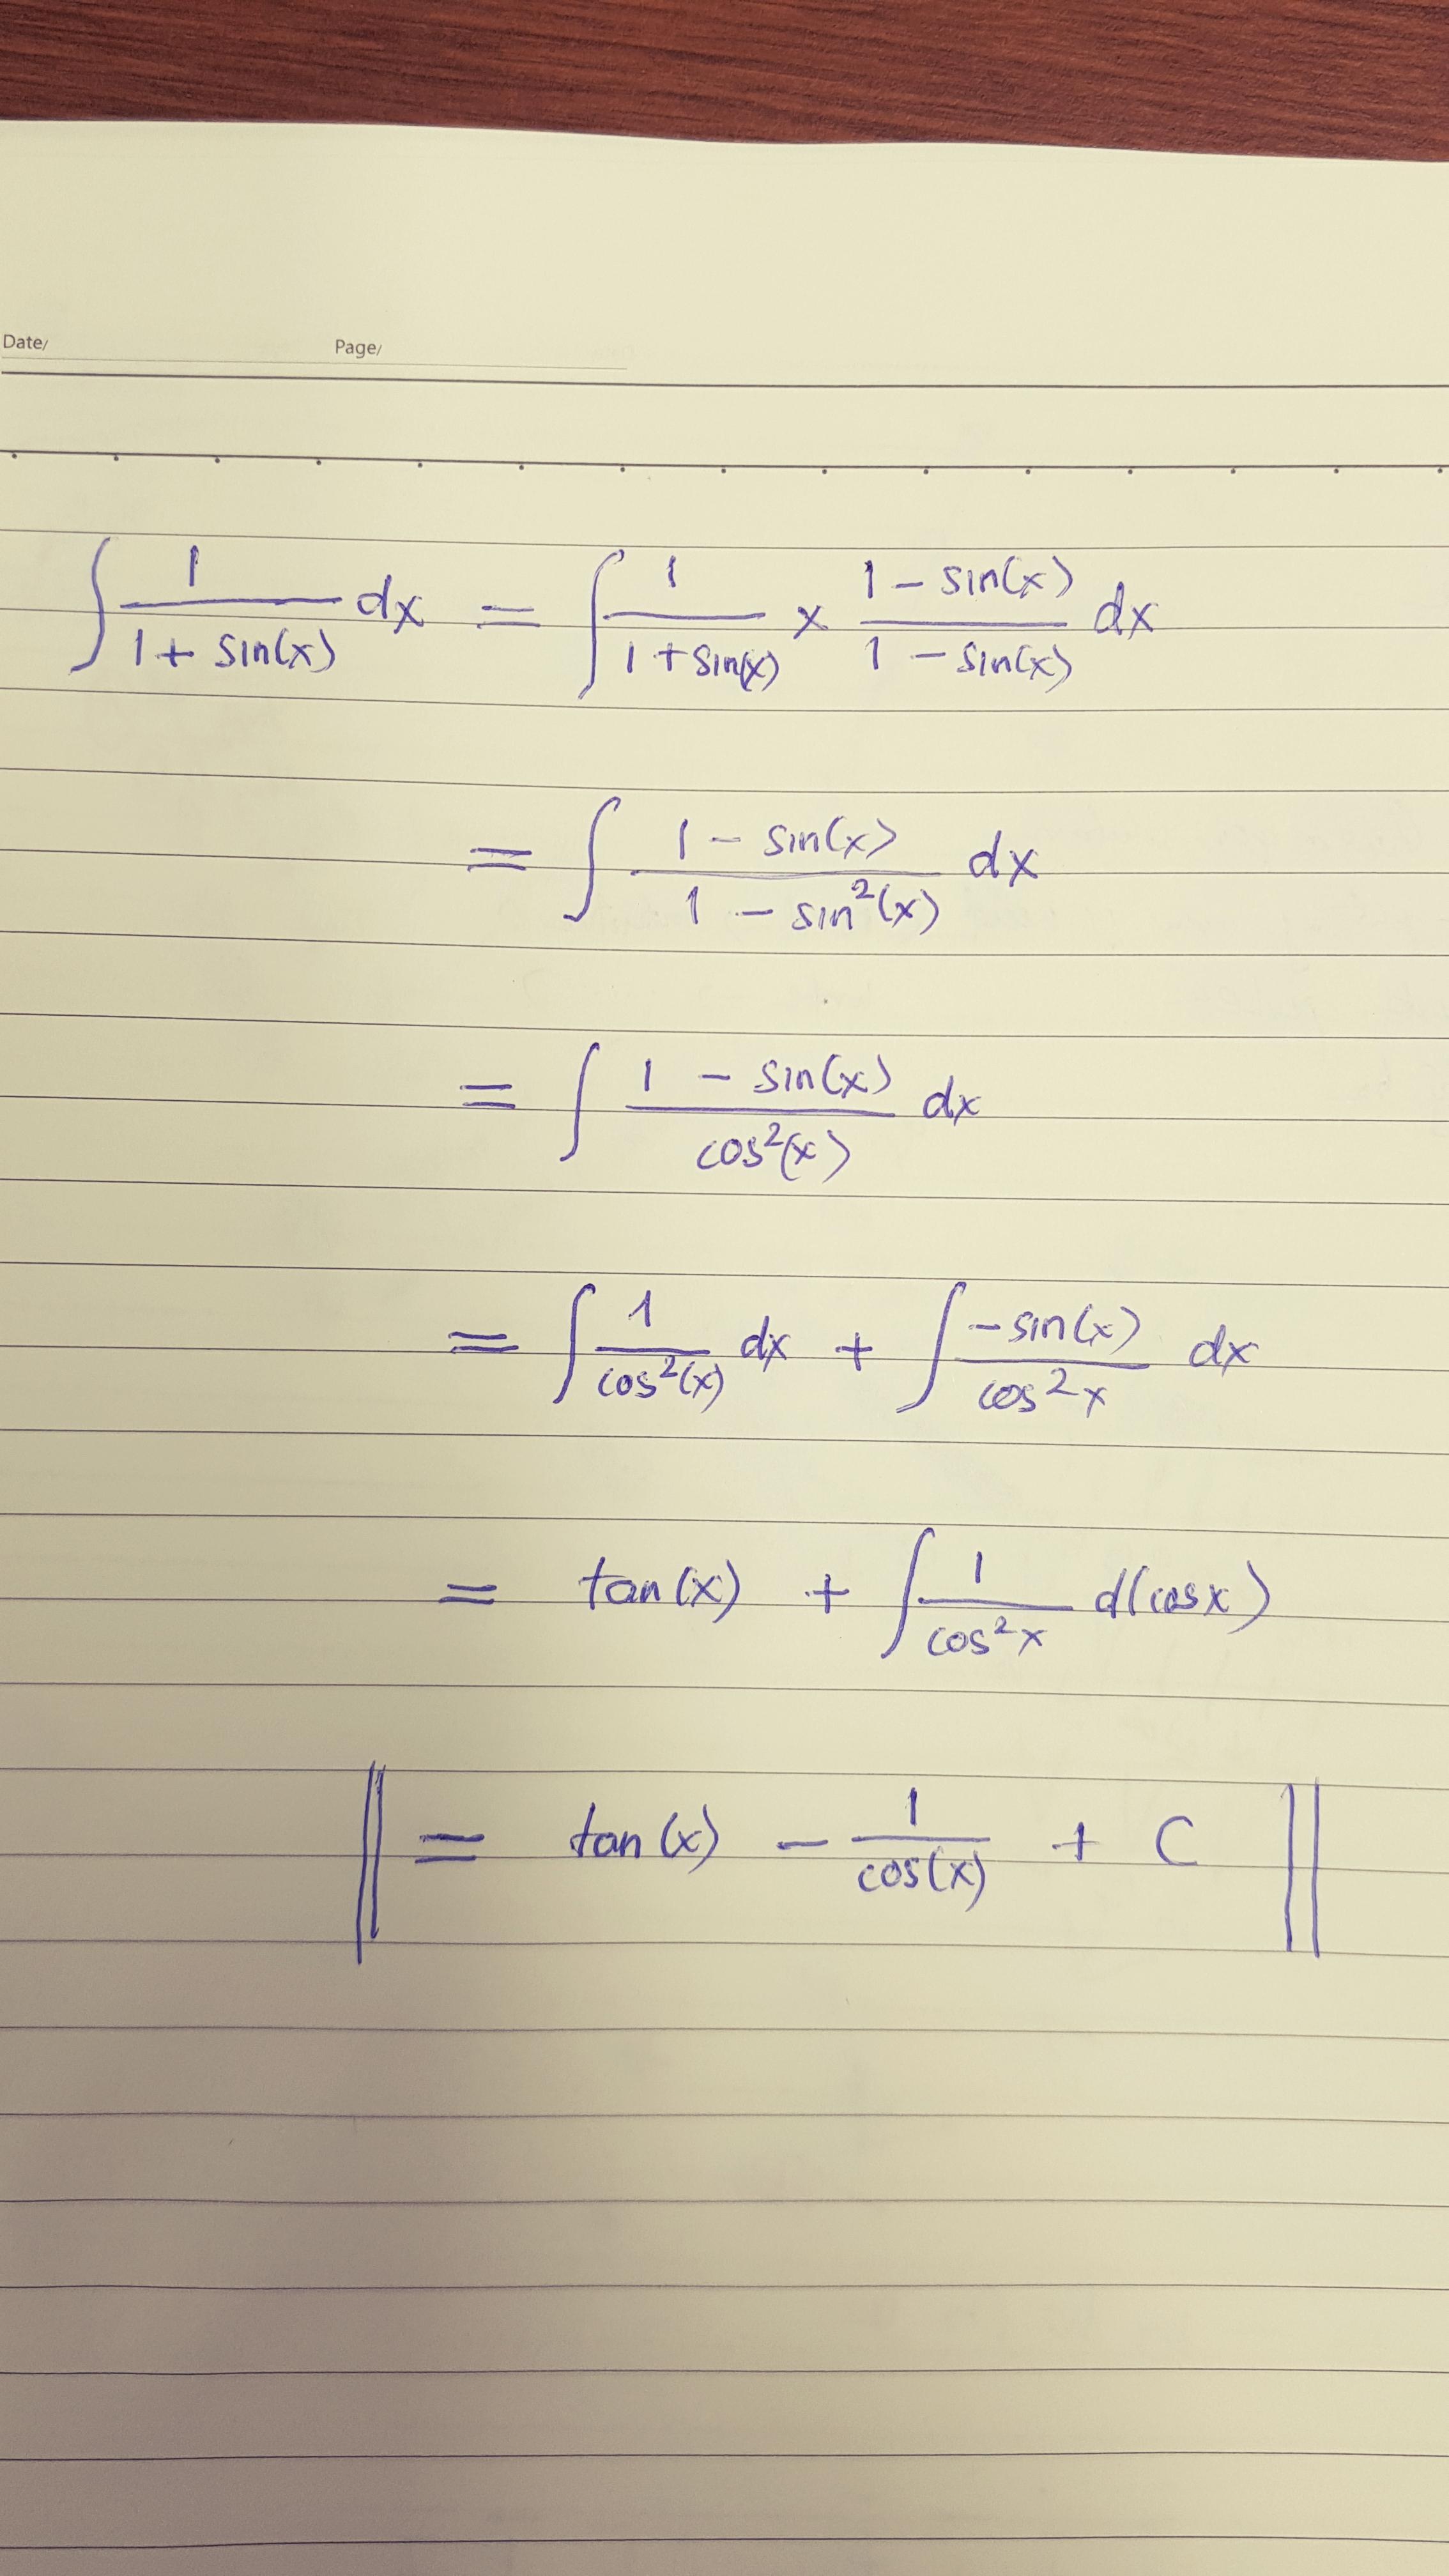 Date/ Page/
∫ 1/(1 + sin(x)) dx = ∫ 1/(1 + sin(x)) × (1 − sin(x))/(1 − sin(x)) dx
= ∫ (1 − sin(x))/(1 − sin²(x)) dx
= ∫ (1 − sin(x))/cos²(x) dx
= ∫ 1/cos²(x) dx + ∫ −sin(x)/cos²x dx
= tan(x) + ∫ 1/cos²x d(cosx)
‖ = tan(x) − 1/cos(x) + C ‖